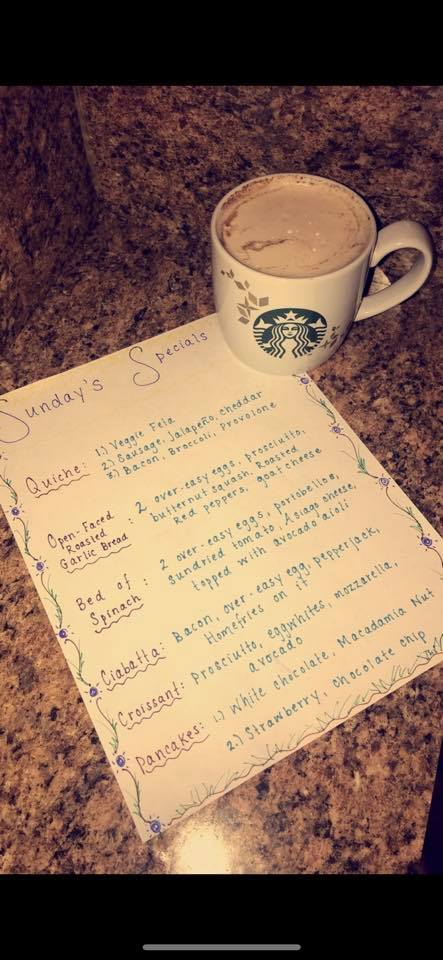 Sunday's Specials
Quiche: 1.) Veggie Feta
2.) Sausage, Jalapeño, cheddar
3.) Bacon, Broccoli, Provolone
Open-Faced Roasted Garlic Bread: 2 over-easy eggs, prosciutto,
butternut squash, Roasted
Red peppers, goat cheese
Bed of Spinach: 2 over-easy eggs, portobelloe,
sundried tomato, Asiago cheese,
topped with avocado aioli
Ciabatta: Bacon, over-easy egg, pepperjack,
Homefries on it
Croissant: Prosciutto, eggwhites, mozzarella,
avocado
Pancakes: 1.) White chocolate, Macadamia Nut
2.) Strawberry, Chocolate chip